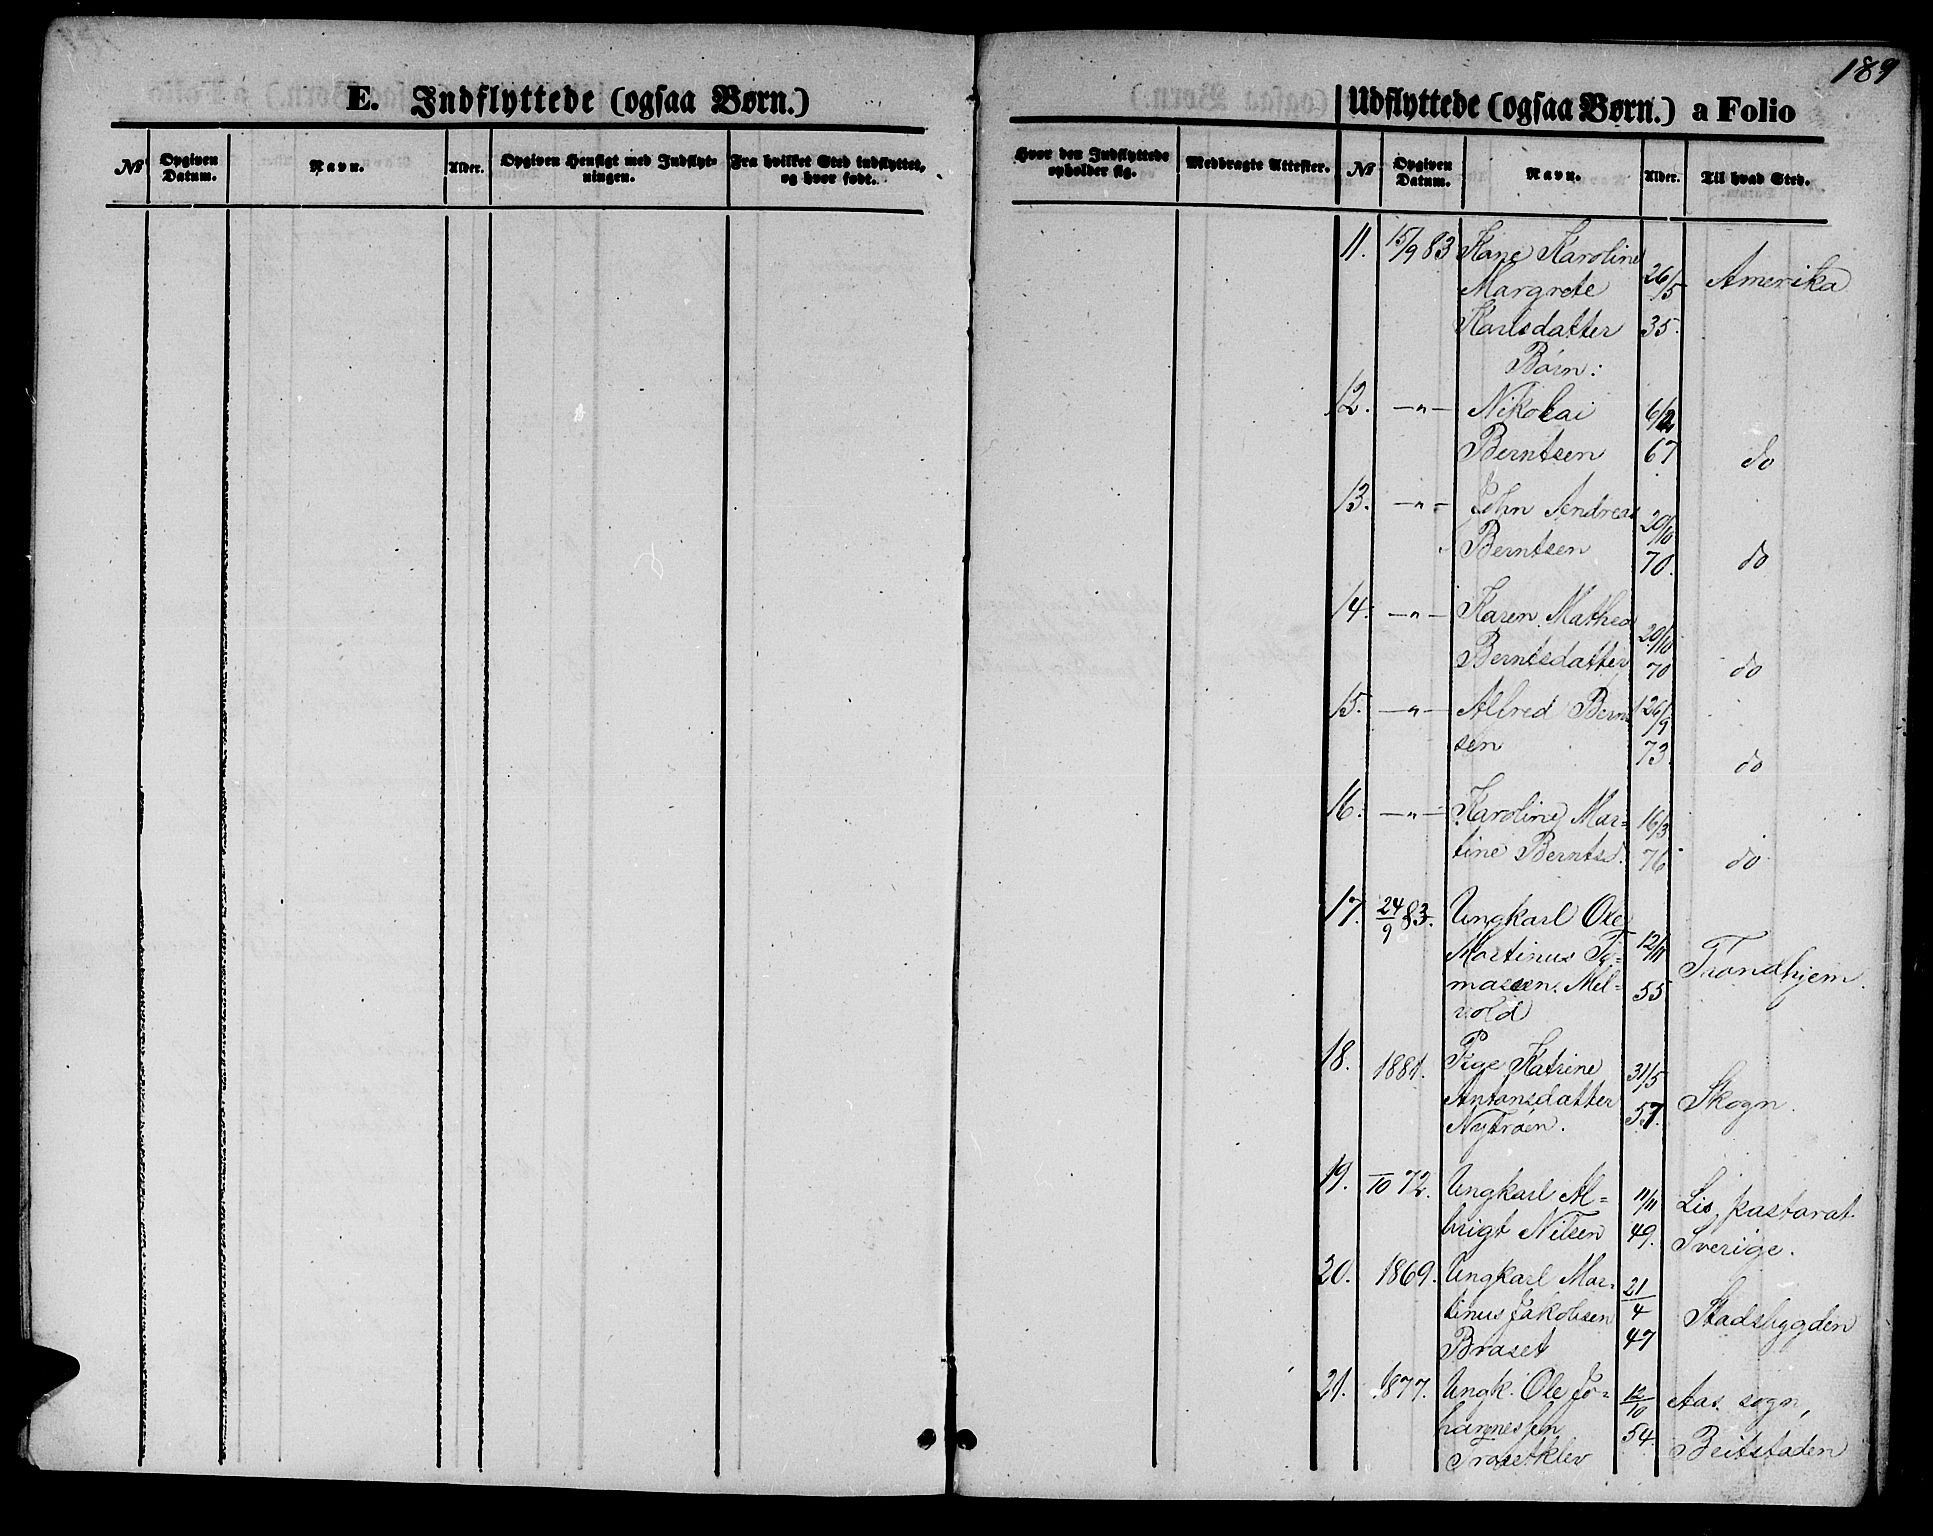 189
E. Indflyttede (ogsaa Børn.)
Udflyttede (ogsaa Børn.) a Folio
No
Opgiven Datum.
Navn.
Alder.
Opgiven Hensigt med Indflyt-
ningen.
Fra hvilket Sted indflyttet,
og hvor født.
Hvor den Indflyttede
opholder sig.
Medbragte Attester.
No
Opgiven Datum.
Navn.
Alder.
Til hvad Sted.
11. 15/9 83 Kone Karoline
Margrete 26/5 Amerika
Karlsdatter 35.
Børn:
12. —„— Nikolai
Berntsen 67 do
13. —„— John Andreas 20/10
Berntsen 70. do
14. —„— Karen Mathea 20/10
Berntsdatter 70 do
15. —„— Alfred Bernt 26/9
sen 73. do
16. —„— Karoline Mar= 16/3
tine Berntsd. 76 do
17. 24/9 83. Ungkarl Ole
Martinus To= 12/11 Trondhjem.
massen Mel- 55
vold
18. 1881. Pige Katrine 31/5
Antonsdatter 57. Skogn.
Nytrøen.
19. /10 72. Ungkarl Al= 11/11 Lis. pastorat
brigt Nilsen 49. Sverige.
20. 1869. Ungkarl Mar- 21/4
tinus Jakobsen Stadsbygden
Braset 47
21. 1877. Ungk. Ole Jo= 12/10 Aas sogn,
hannessen 54. Beitstaden
Trosetklev